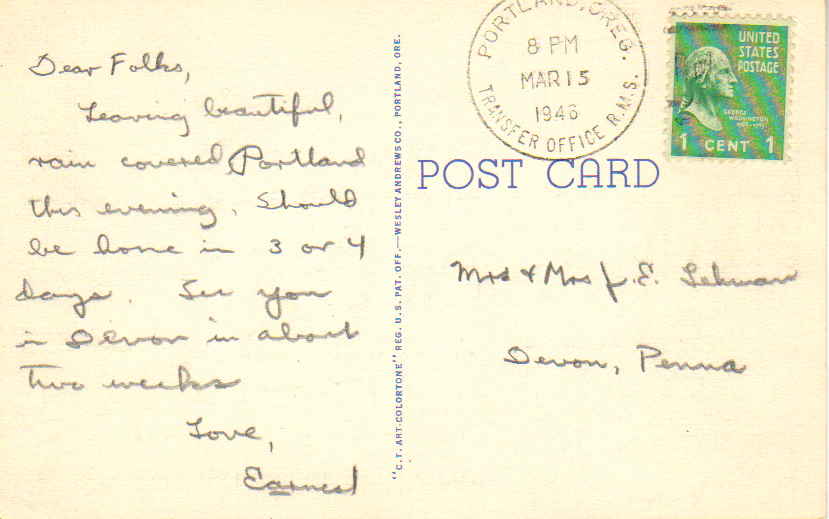 Dear Folks,
Leaving beautiful,
rain covered, Portland
this evening. Should
be home in 3 or 4
days. See you
in Devon in about
two weeks
Love,
Earnest
"C.T. ART-COLORTONE" REG. U.S. PAT. OFF.—WESLEY ANDREWS CO., PORTLAND, ORE.
PORTLAND, OREG.
8 PM
MAR 15
1946
TRANSFER OFFICE R.M.S.
UNITED
STATES
POSTAGE
GEORGE
WASHINGTON
1 CENT 1
POST CARD
Mr & Mrs J. E. Lehman
Devon, Penna